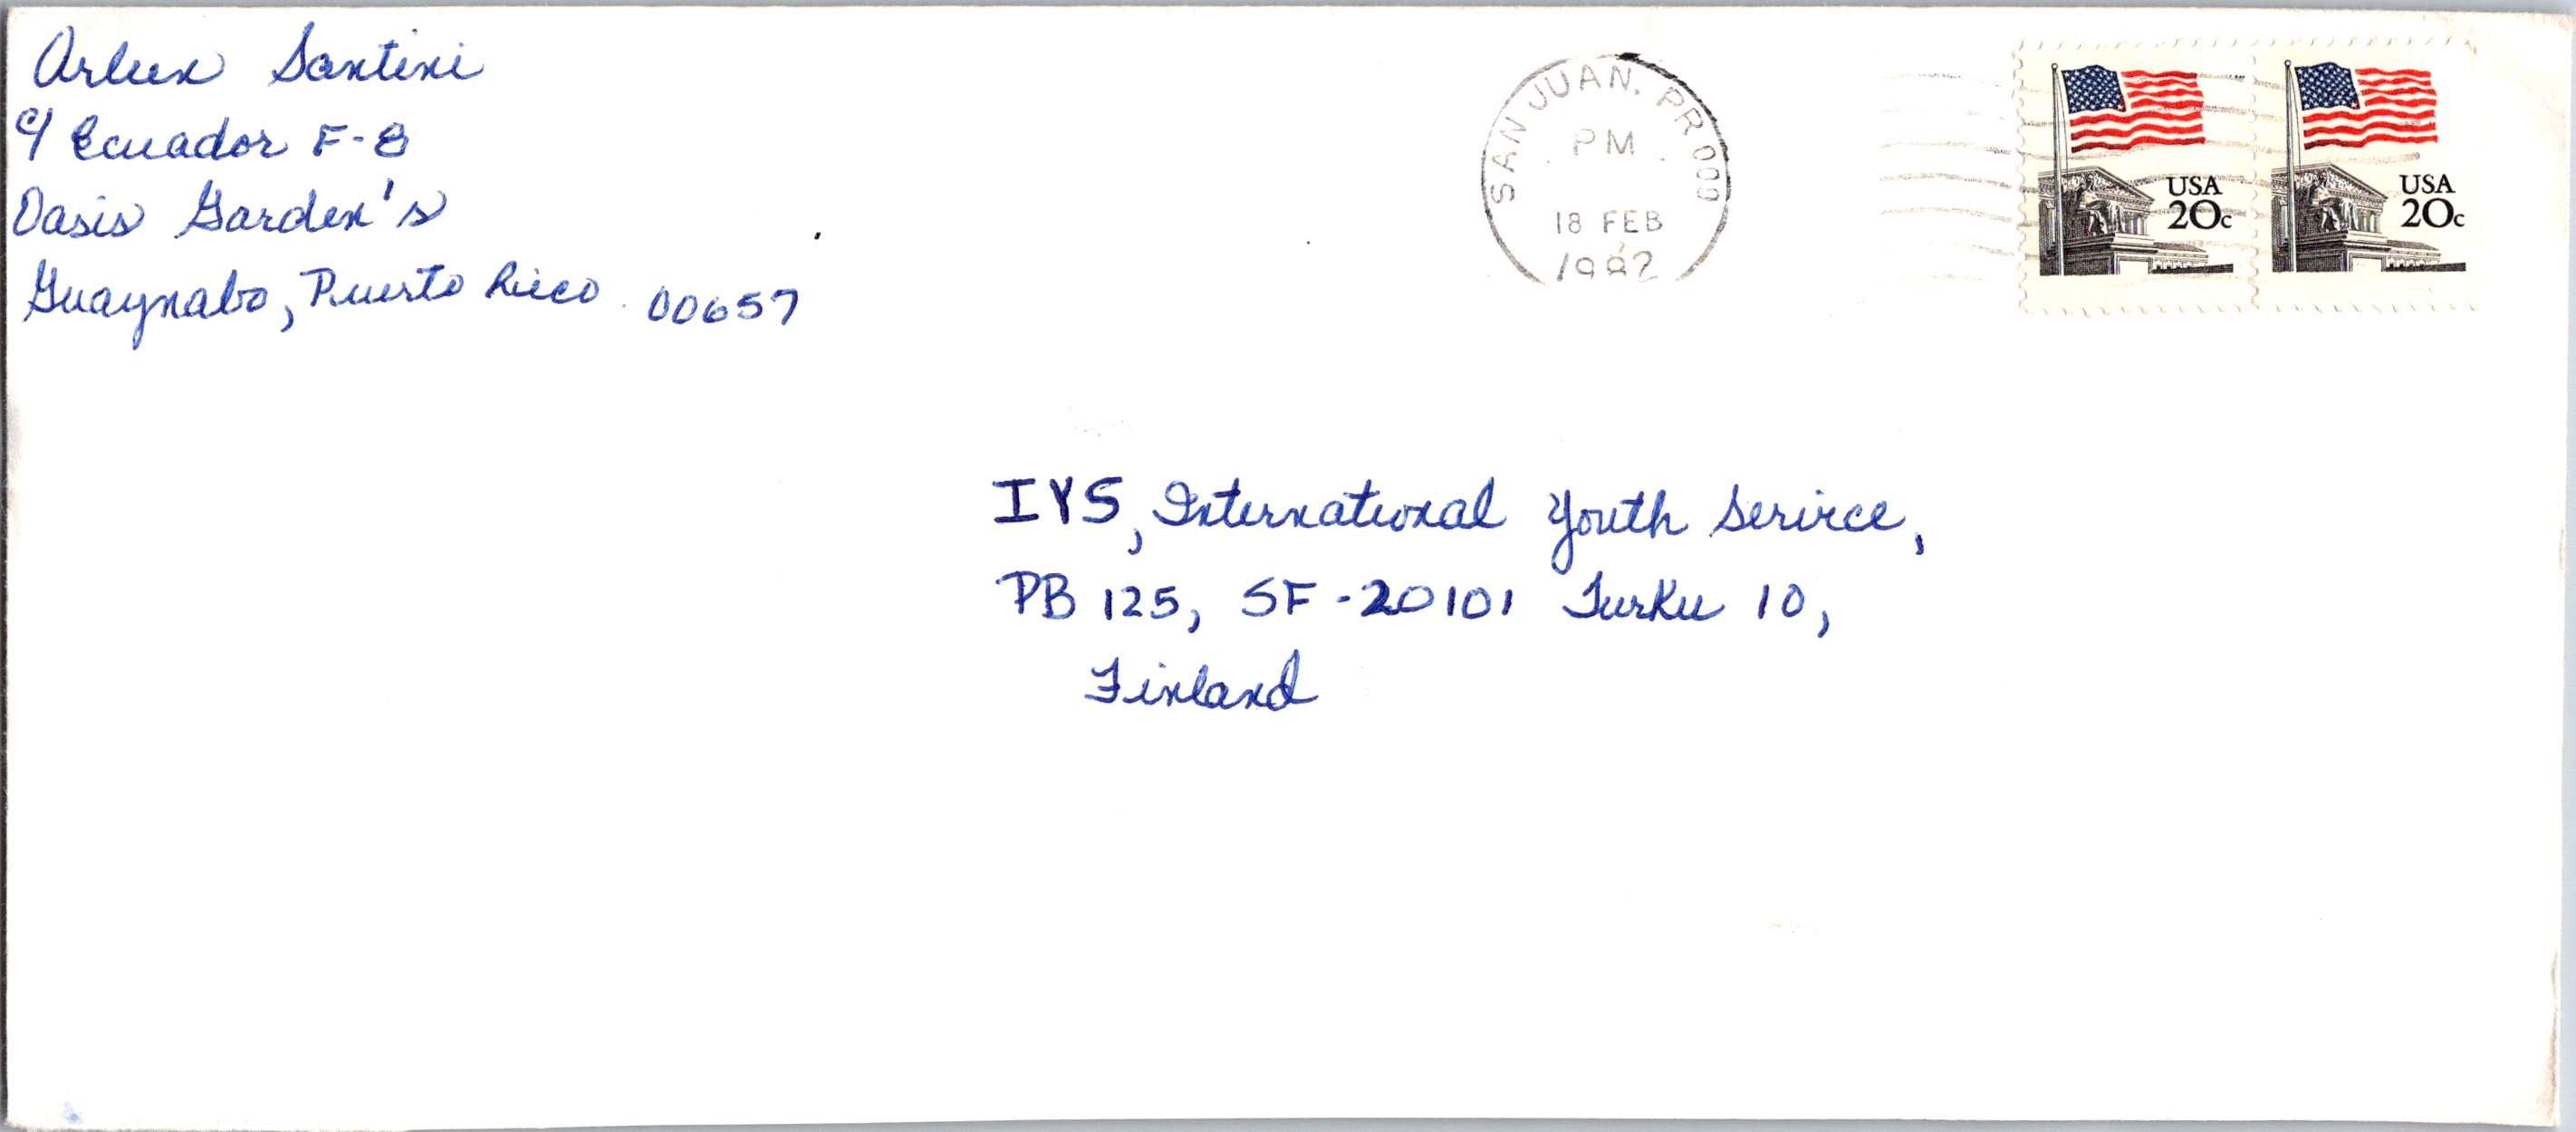 Arleen Santini
c/ Ecuador F-8
Oasis Garden's
Guaynabo, Puerto Rico 00657
SAN JUAN. PR 009
PM
18 FEB
USA
20c
USA
20c
IYS, International Youth Serivce,
PB 125, SF-20101 Turku 10,
Finland